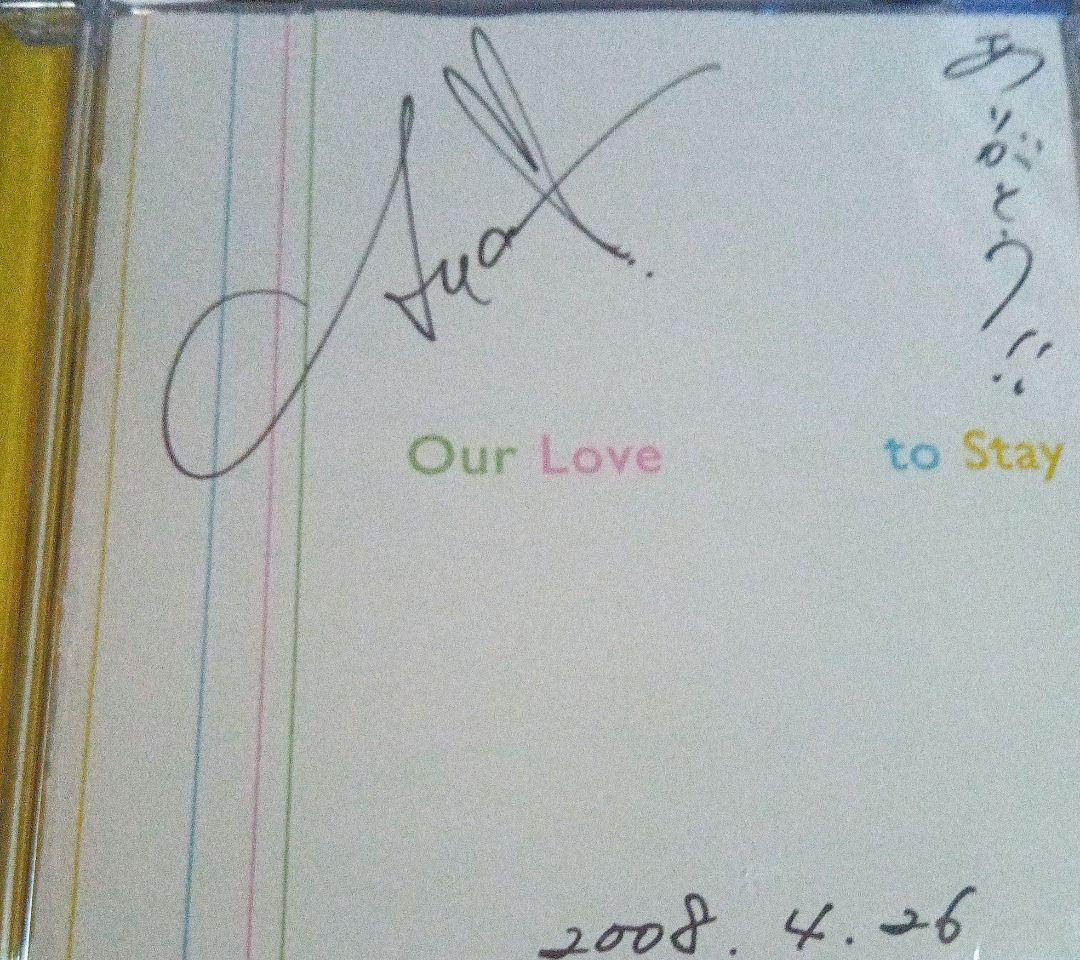 ありがとう!!
Our Love to Stay
2008.4.26